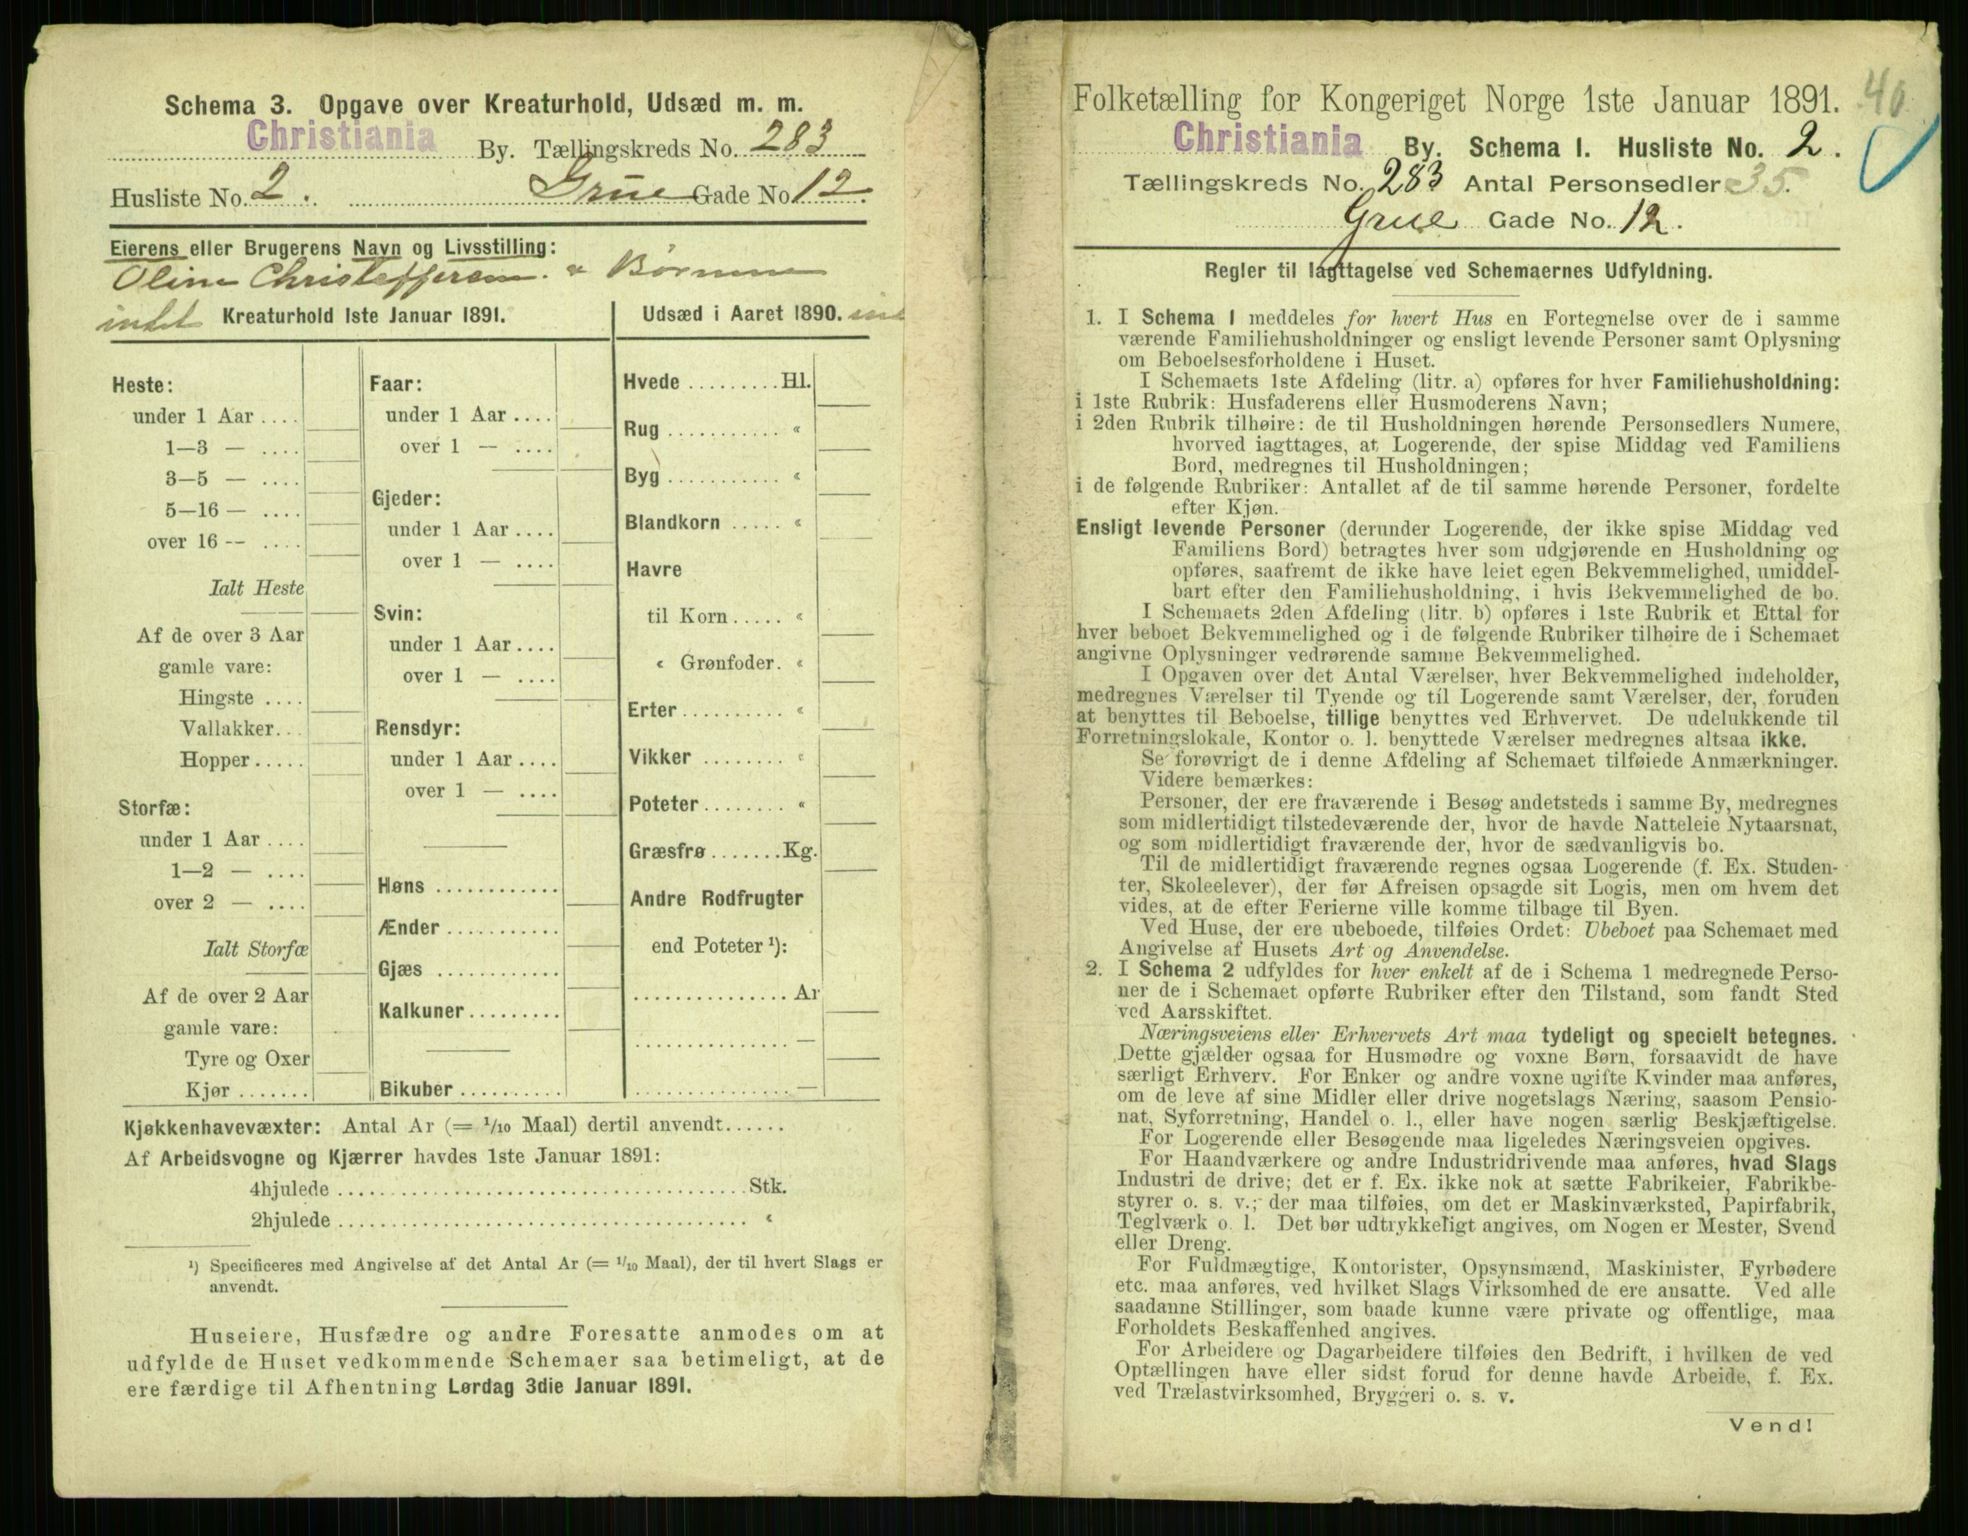 Schema 3. Opgave over Kreaturhold, Udsæd m. m.
Christiania By. Tællingskreds No. 283
Husliste No. 2. Grue Gade No 12.
Eierens eller Brugerens Navn og Livsstilling:
Oline Christoffersen &
intet Kreaturhold 1ste Januar 1891.
Heste:
under 1 Aar ....
1—3 — ....
3—5 — ....
5—16 — ....
over 16 -- ....
Ialt Heste
Af de over 3 Aar
gamle vare:
Hingste ....
Vallakker...
Hopper.....
Storfæ:
under 1 Aar ....
1—2 — ....
over 2 — ....
Ialt Storfæ
Af de over 2 Aar
gamle vare:
Tyre og Oxer
Kjør .......
Faar:
under 1 Aar ....
over 1 — ....
Gjeder:
under 1 Aar ....
over 1 — ....
Svin:
under 1 Aar ....
over 1 — ....
Rensdyr:
under 1 Aar ....
over 1 — ....
Høns ............
Ænder ...........
Gjæs ............
Kalkuner.........
Bikuber ..........
Udsæd i Aaret 1890.
Hvede .........Hl.
Rug ........... «
Byg ........... «
Blandkorn ..... «
Havre
til Korn..... «
« Grønfoder. «
Erter.......... «
Vikker ........ «
Poteter........ «
Græsfrø.......Kg.
Andre Rodfrugter
end Poteter ¹):
............... Ar
............... —
............... —
Kjøkkenhavevæxter: Antal Ar (= 1/10 Maal) dertil anvendt......
Af Arbeidsvogne og Kjærrer havdes 1ste Januar 1891:
4hjulede ........................................Stk.
2hjulede ........................................ «
¹) Specificeres med Angivelse af det Antal Ar (= 1/10 Maal), der til hvert Slags er
anvendt.
Huseiere, Husfædre og andre Foresatte anmodes om at
udfylde de Huset vedkommende Schemaer saa betimeligt, at de
ere færdige til Afhentning Lørdag 3die Januar 1891.
40
Folketælling for Kongeriget Norge 1ste Januar 1891.
Christiania By. Schema I. Husliste No. 2.
Tællingskreds No. 283 Antal Personsedler 35.
Grue Gade No. 12.
Regler til Iagttagelse ved Schemaernes Udfyldning.
1. I Schema 1 meddeles for hvert Hus en Fortegnelse over de i samme
værende Familiehusholdninger og ensligt levende Personer samt Oplysning
om Beboelsesforholdene i Huset.
I Schemaets 1ste Afdeling (litr. a) opføres for hver Familiehusholdning:
i 1ste Rubrik: Husfaderens eller Husmoderens Navn;
i 2den Rubrik tilhøire: de til Husholdningen hørende Personsedlers Numere,
hvorved iagttages, at Logerende, der spise Middag ved Familiens
Bord, medregnes til Husholdningen;
i de følgende Rubriker: Antallet af de til samme hørende Personer, fordelte
efter Kjøn.
Ensligt levende Personer (derunder Logerende, der ikke spise Middag ved
Familiens Bord) betragtes hver som udgjørende en Husholdning og
opføres, saafremt de ikke have leiet egen Bekvemmelighed, umiddel-
bart efter den Familiehusholdning, i hvis Bekvemmelighed de bo.
I Schemaets 2den Afdeling (litr. b) opføres i 1ste Rubrik et Ettal for
hver beboet Bekvemmelighed og i de følgende Rubriker tilhøire de i Schemaet
angivne Oplysninger vedrørende samme Bekvemmelighed.
I Opgaven over det Antal Værelser, hver Bekvemmelighed indeholder,
medregnes Værelser til Tyende og til Logerende samt Værelser, der, foruden
at benyttes til Beboelse, tillige benyttes ved Erhvervet. De udelukkende til
Forretningslokale, Kontor o. l. benyttede Værelser medregnes altsaa ikke.
Se forøvrigt de i denne Afdeling af Schemaet tilføiede Anmærkninger.
Videre bemærkes:
Personer, der ere fraværende i Besøg andetsteds i samme By, medregnes
som midlertidigt tilstedeværende der, hvor de havde Natteleie Nytaarsnat,
og som midlertidigt fraværende der, hvor de sædvanligvis bo.
Til de midlertidigt fraværende regnes ogsaa Logerende (f. Ex. Studen-
ter, Skoleelever), der før Afreisen opsagde sit Logis, men om hvem det
vides, at de efter Ferierne ville komme tilbage til Byen.
Ved Huse, der ere ubeboede, tilføies Ordet: Ubeboet paa Schemaet med
Angivelse af Husets Art og Anvendelse.
2. I Schema 2 udfyldes for hver enkelt af de i Schema 1 medregnede Perso-
ner de i Schemaet opførte Rubriker efter den Tilstand, som fandt Sted
ved Aarsskiftet.
Næringsveiens eller Erhvervets Art maa tydeligt og specielt betegnes.
Dette gjælder ogsaa for Husmødre og voxne Børn, forsaavidt de have
særligt Erhverv. For Enker og andre voxne ugifte Kvinder maa anføres,
om de leve af sine Midler eller drive nogetslags Næring, saasom Pensio-
nat, Syforretning, Handel o. l., eller have nogen særlig Beskjæftigelse.
For Logerende eller Besøgende maa ligeledes Næringsveien opgives.
For Haandværkere og andre Industridrivende maa anføres, hvad Slags
Industri de drive; det er f. Ex. ikke nok at sætte Fabrikeier, Fabrikbe-
styrer o. s. v.; der maa tilføies, om det er Maskinværksted, Papirfabrik,
Teglværk o. l. Det bør udtrykkeligt angives, om Nogen er Mester, Svend
eller Dreng.
For Fuldmægtige, Kontorister, Opsynsmænd, Maskinister, Fyrbødere
etc. maa anføres, ved hvilket Slags Virksomhed de ere ansatte. Ved alle
saadanne Stillinger, som baade kunne være private og offentlige, maa
Forholdets Beskaffenhed angives.
For Arbeidere og Dagarbeidere tilføies den Bedrift, i hvilken de ved
Optællingen have eller sidst forud for denne havde Arbeide, f. Ex.
ved Trælastvirksomhed, Bryggeri o. s. v.
Vend!